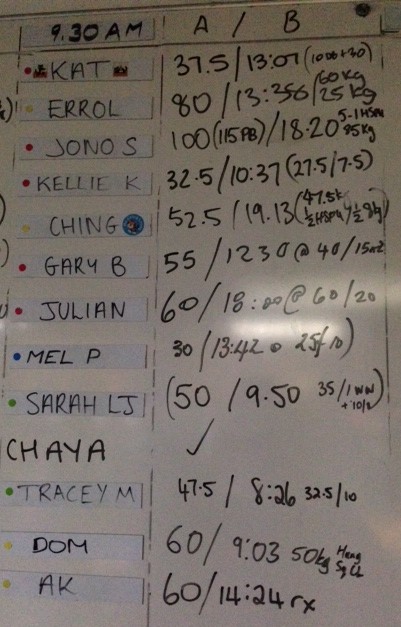 9.30 AM A / B
KAT 37.5 / 13:07 (100s+30)
ERROL 80 / 13:356 / 60kg 25kg
JONO S 100 (115PB) / 18:20 5-1 HSPU 85kg
KELLIE K 32.5 / 10:37 (27.5 / 7.5)
CHING 52.5 / 19.13 (47.5k ½ HSPU / ½ 8kg)
GARY B 55 / 1230 @ 40 / 15
JULIAN 60 / 18:00 @ 60 / 20
MEL P 30 / 13:42 @ 25 / 10)
SARAH LJ (50 / 9.50 35 / 1 WW + 10/)
CHAYA ✓
TRACEY M 47.5 / 8:26 32.5 / 10
DOM 60 / 9:03 50kg Hang Sq Cl
AK 60 / 14:24 rx